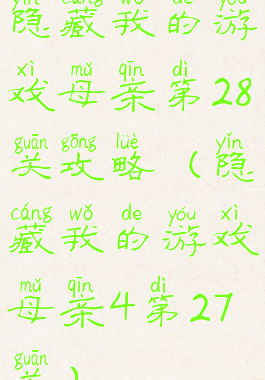 yǐn cáng wǒ de yóu
隐藏我的游
xì mǔ qīn dì
戏母亲第28
guān gōng lüè yǐn
关攻略（隐
cáng wǒ de yóu xì
藏我的游戏
mǔ qīn dì
母亲4第27
guān
关）